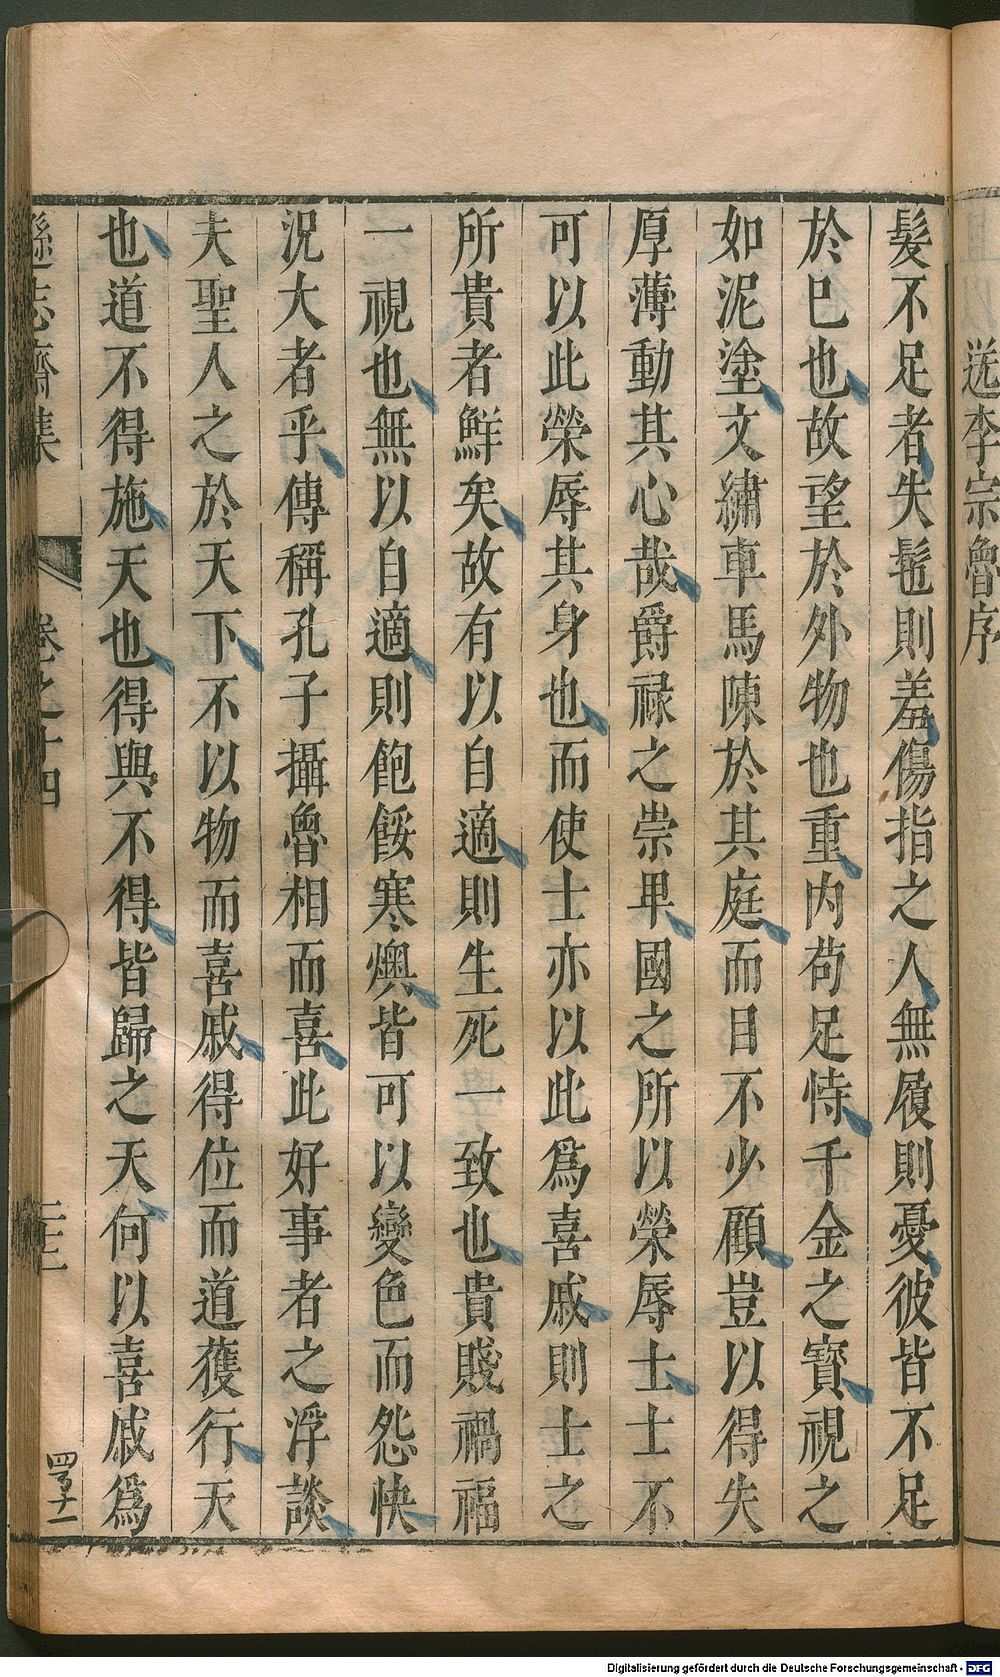 送李宗魯序
髮不足者失髢則羞傷指之人無履則憂彼皆不足
於巳也故望於外物也重内苟足恃千金之寳視之
如泥塗文繡車馬陳於其庭而目不少顧豈以得失
厚薄動其心哉爵祿之崇卑國之所以榮辱士士不
可以此榮辱其身也而使士亦以此爲喜戚則士之
所貴者鮮矣故有以自適則生死一致也貴賤禍福
一視也無以自適則飽餒寒燠皆可以變色而怨快
況大者乎傳稱孔子攝魯相而喜此好事者之浮談
夫聖人之於天下不以物而喜戚得位而道獲行天
也道不得施天也得與不得皆歸之天何以喜戚爲
遜志齋集
卷之十四
二十二
Digitalisierung gefördert durch die Deutsche Forschungsgemeinschaft - DFG